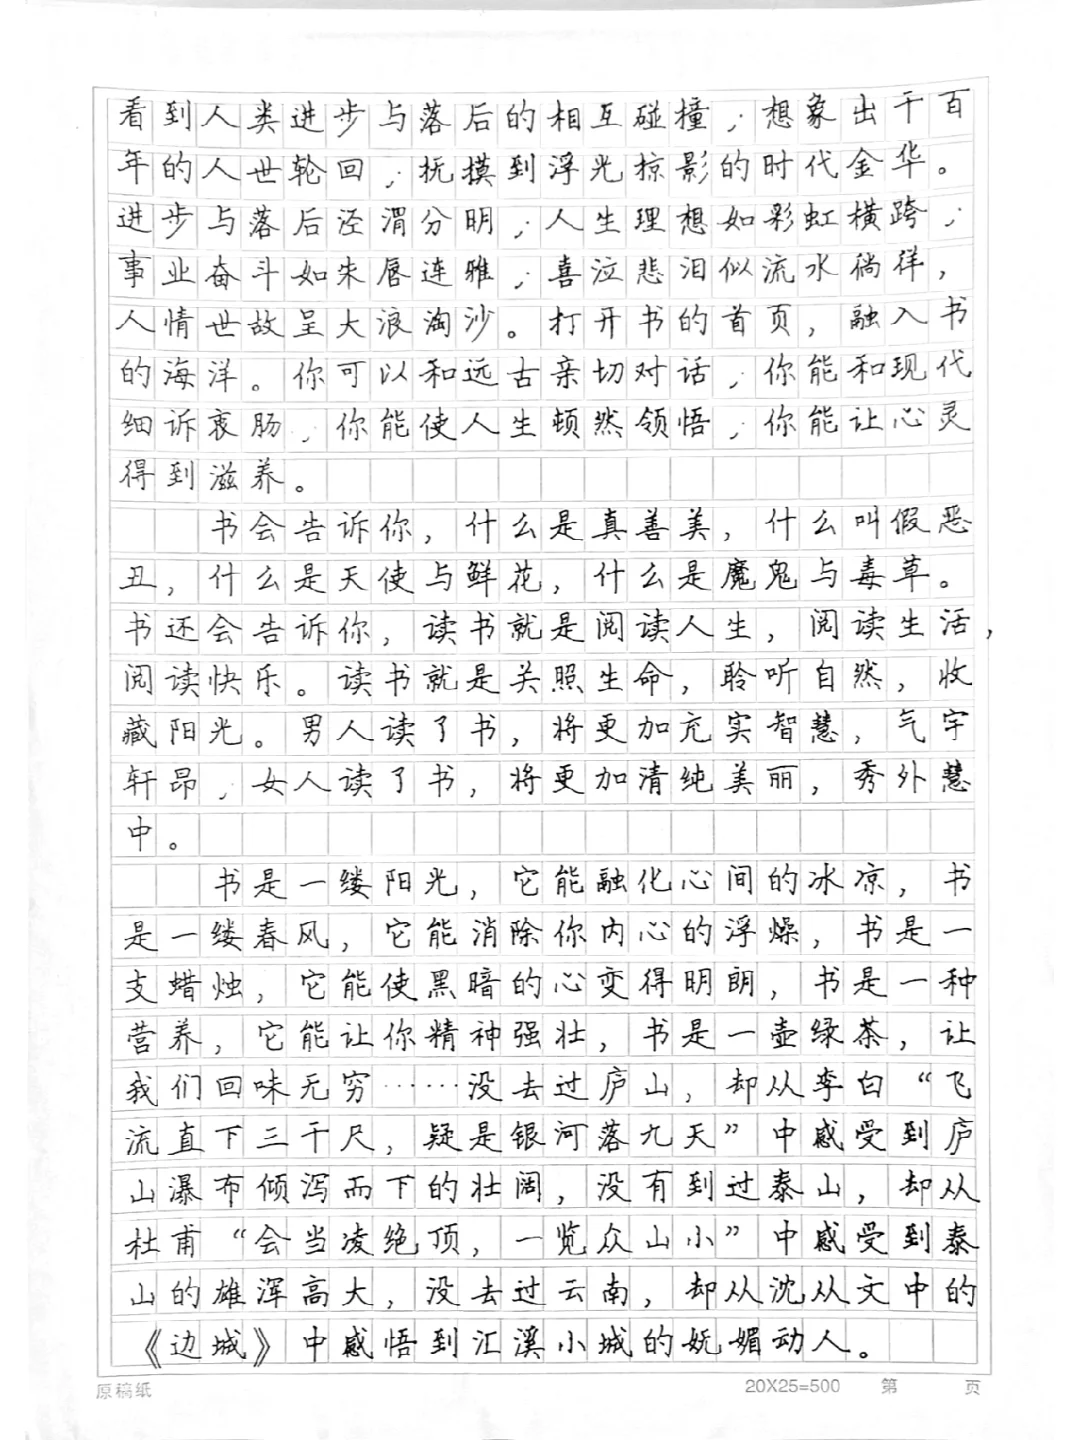 看到人类进步与落后的相互碰撞；想象出千百
年的人世轮回；抚摸到浮光掠影的时代金华。
进步与落后泾渭分明；人生理想如彩虹横跨；
事业奋斗如朱唇连雅；喜泣悲泪似流水徜徉，
人情世故呈大浪淘沙。打开书的首页，融入书
的海洋。你可以和远古亲切对话；你能和现代
细诉衷肠；你能使人生顿然领悟；你能让心灵
得到滋养。
书会告诉你，什么是真善美，什么叫假恶
丑，什么是天使与鲜花，什么是魔鬼与毒草。
书还会告诉你，读书就是阅读人生，阅读生活，
阅读快乐。读书就是关照生命，聆听自然，收
藏阳光。男人读了书，将更加充实智慧，气宇
轩昂；女人读了书，将更加清纯美丽，秀外慧
中。
书是一缕阳光，它能融化心间的冰凉，书
是一缕春风，它能消除你内心的浮燥，书是一
支蜡烛，它能使黑暗的心变得明朗，书是一种
营养，它能让你精神强壮，书是一壶绿茶，让
我们回味无穷……没去过庐山，却从李白“飞
流直下三千尺，疑是银河落九天”中感受到庐
山瀑布倾泻而下的壮阔，没有到过泰山，却从
杜甫“会当凌绝顶，一览众山小”中感受到泰
山的雄浑高大，没去过云南，却从沈从文中的
《边城》中感悟到汇溪小城的妩媚动人。
原稿纸 20X25=500 第 页